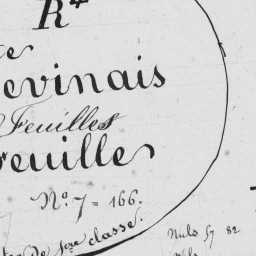 R⁴
te
evinais
Feuilles
euille
N.º 7 = 166.
de 1ère classe.
Nulo 57 82